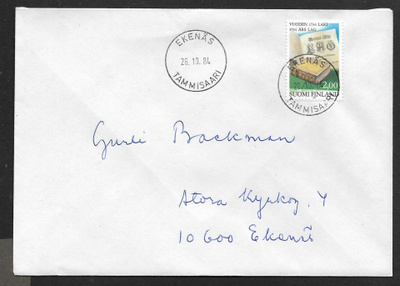 EKENÄS
26.10.84
TAMMISAARI
VUODEN 1734 LAKI
1734 ÅRS LAG
2,00
SUOMI FINLAND
EKENÄS
TAMMISAARI
Gurli Backman
Stora Kyrkog. 4
10600 Ekenäs